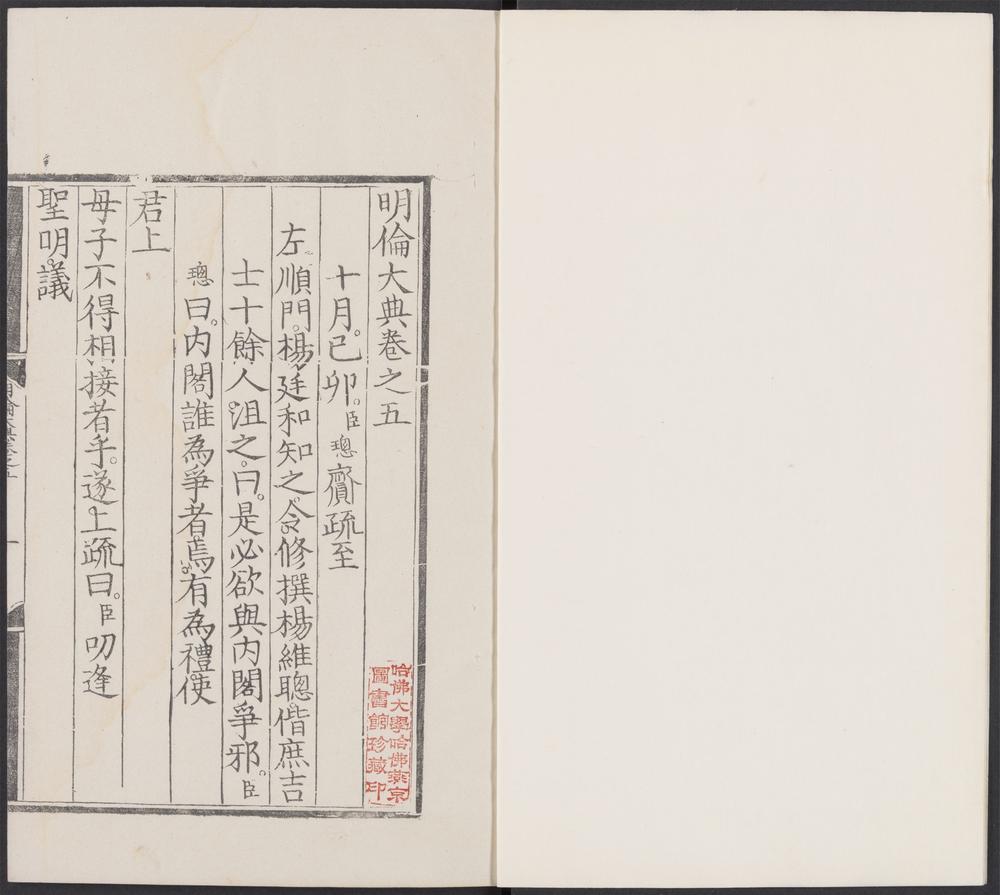 明倫大典卷之五
十月。己卯。臣璁齎疏至
左順門。楊廷和知之。令修撰楊維聰。偕庶吉
士十餘人沮之。曰。是必欲與內閣爭邪。臣
璁曰。內閣誰為爭者。焉有為禮。使
君上
母子不得相接者乎。遂上疏曰。臣叨逢
聖明。議
哈佛大學哈佛燕京
圖書館珍藏印